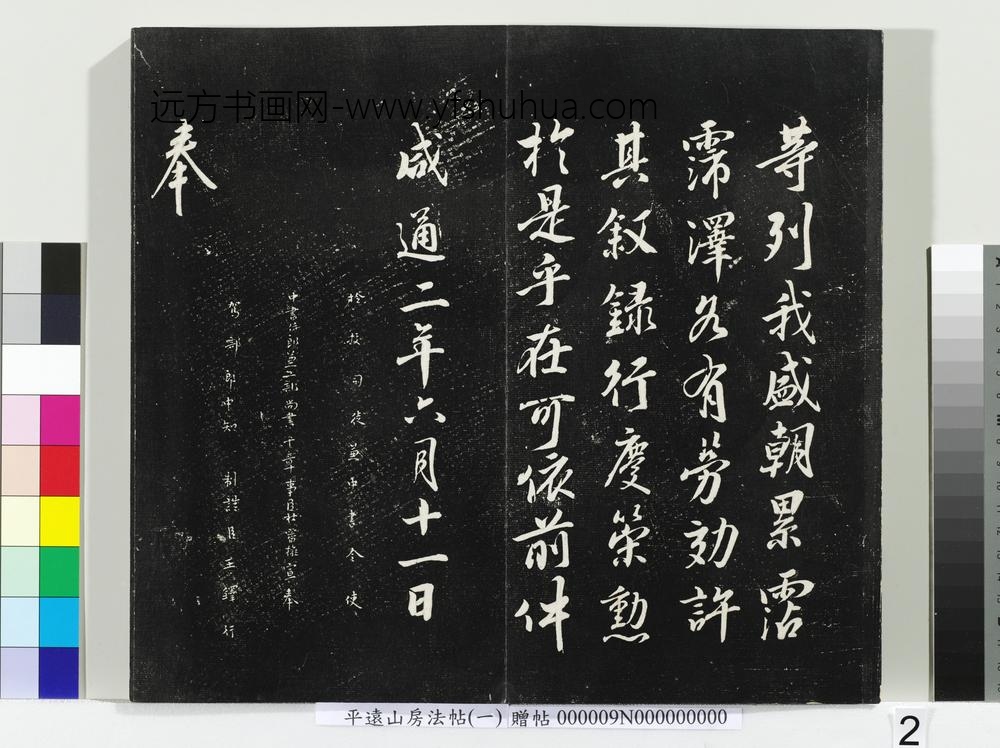 等列我盛朝累霑
霈澤各有勞効許
其叙録行慶策勲
於是乎在可依前件
咸通二年六月十一日
檢校司徒兼中書令使
中書侍郎兼工部尚書平章事臣杜審權宣奉
駕部郎中知制誥臣王鐸行
奉
远方书画网-www.yfshuhua.com
平遠山房法帖(一) 贈帖 000009N000000000
2